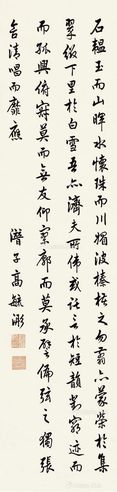 石韞玉而山暉水懷珠而川媚彼榛楛之勿翦亦蒙榮於集
翠綴下里於白雪吾亦濟夫所偉或託言於短韻對窮迹而
而孤興俯寂寞而無友仰寥廓而莫承譬偏弦之獨張
含清唱而靡應
潛子高毓浵